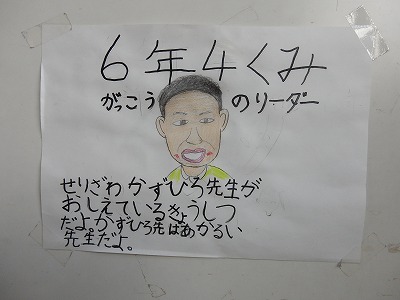 6年4くみ
がっこう のリーダー
せりざわかずひろ先生が
おしえているきょうしつ
だよ。かずひろ先はあかるい
先生だよ。